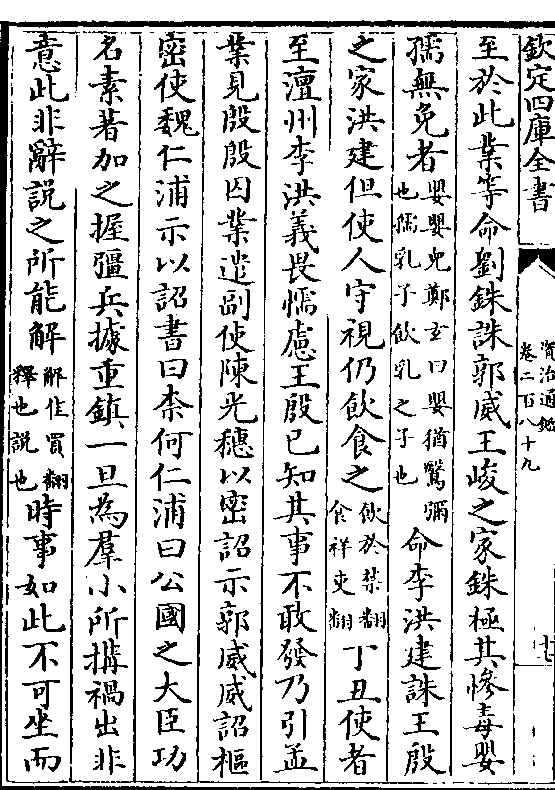 欽定四庫全書
資治通鑑
卷二百八十九
十七
至於此業等命劉銖誅郭威王峻之家銖極其慘毒嬰
孺無免者嬰嬰兒鄭玄曰嬰猶鷖彌也孺乳子飲乳之子也命李洪建誅王殷
之家洪建但使人守視仍飲食之飲於禁翻食祥吏翻丁丑使者
至澶州李洪義畏懦慮王殷已知其事不敢發乃引孟
業見殷殷囚業遣副使陳光穗以密詔示郭威威詔樞
密使魏仁浦示以詔書曰柰何仁浦曰公國之大臣功
名素著加之握彊兵據重鎮一旦為羣小所搆禍出非
意此非辭說之所能解解作買翻釋也說也時事如此不可坐而